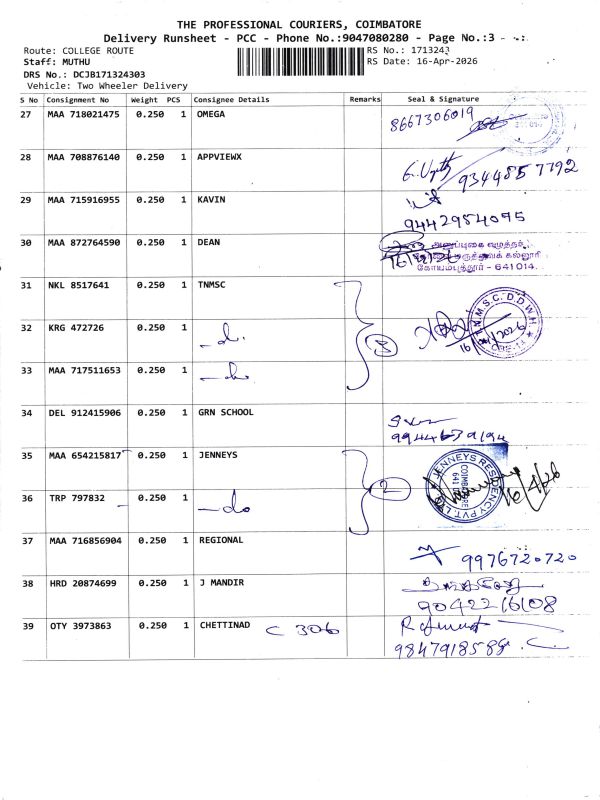 THE PROFESSIONAL COURIERS, COIMBATORE
Delivery Runsheet - PCC - Phone No.:9047080280 - Page No.:3 -
Route: COLLEGE ROUTE RS No.: 1713243
Staff: MUTHU RS Date: 16-Apr-2026
DRS No.: DCJB171324303
Vehicle: Two Wheeler Delivery
S No Consignment No Weight PCS Consignee Details Remarks Seal & Signature
27 MAA 718021475 0.250 1 OMEGA 8667306019
28 MAA 708876140 0.250 1 APPVIEWX 9344857792
29 MAA 715916955 0.250 1 KAVIN
9442984095
30 MAA 872764590 0.250 1 DEAN அனுப்புகை எழுத்தர்
மருத்துவக் கல்லூரி
கோயமுத்தூர் - 641 014.
31 NKL 8517641 0.250 1 TNMSC
T.N.M.S.C. D.D.W.H
32 KRG 472726 0.250 1 -do- 3
16/4/2026
33 MAA 717511653 0.250 1 -do-
34 DEL 912415906 0.250 1 GRN SCHOOL
35 MAA 654215817 0.250 1 JENNEYS
JENNEYS RESIDENCY PVT. LTD
COIMBATORE
2 16/4/26
36 TRP 797832 0.250 1 -do
37 MAA 716856904 0.250 1 REGIONAL
9976720720
38 HRD 20874699 0.250 1 J MANDIR
9042216108
39 OTY 3973863 0.250 1 CHETTINAD C 306